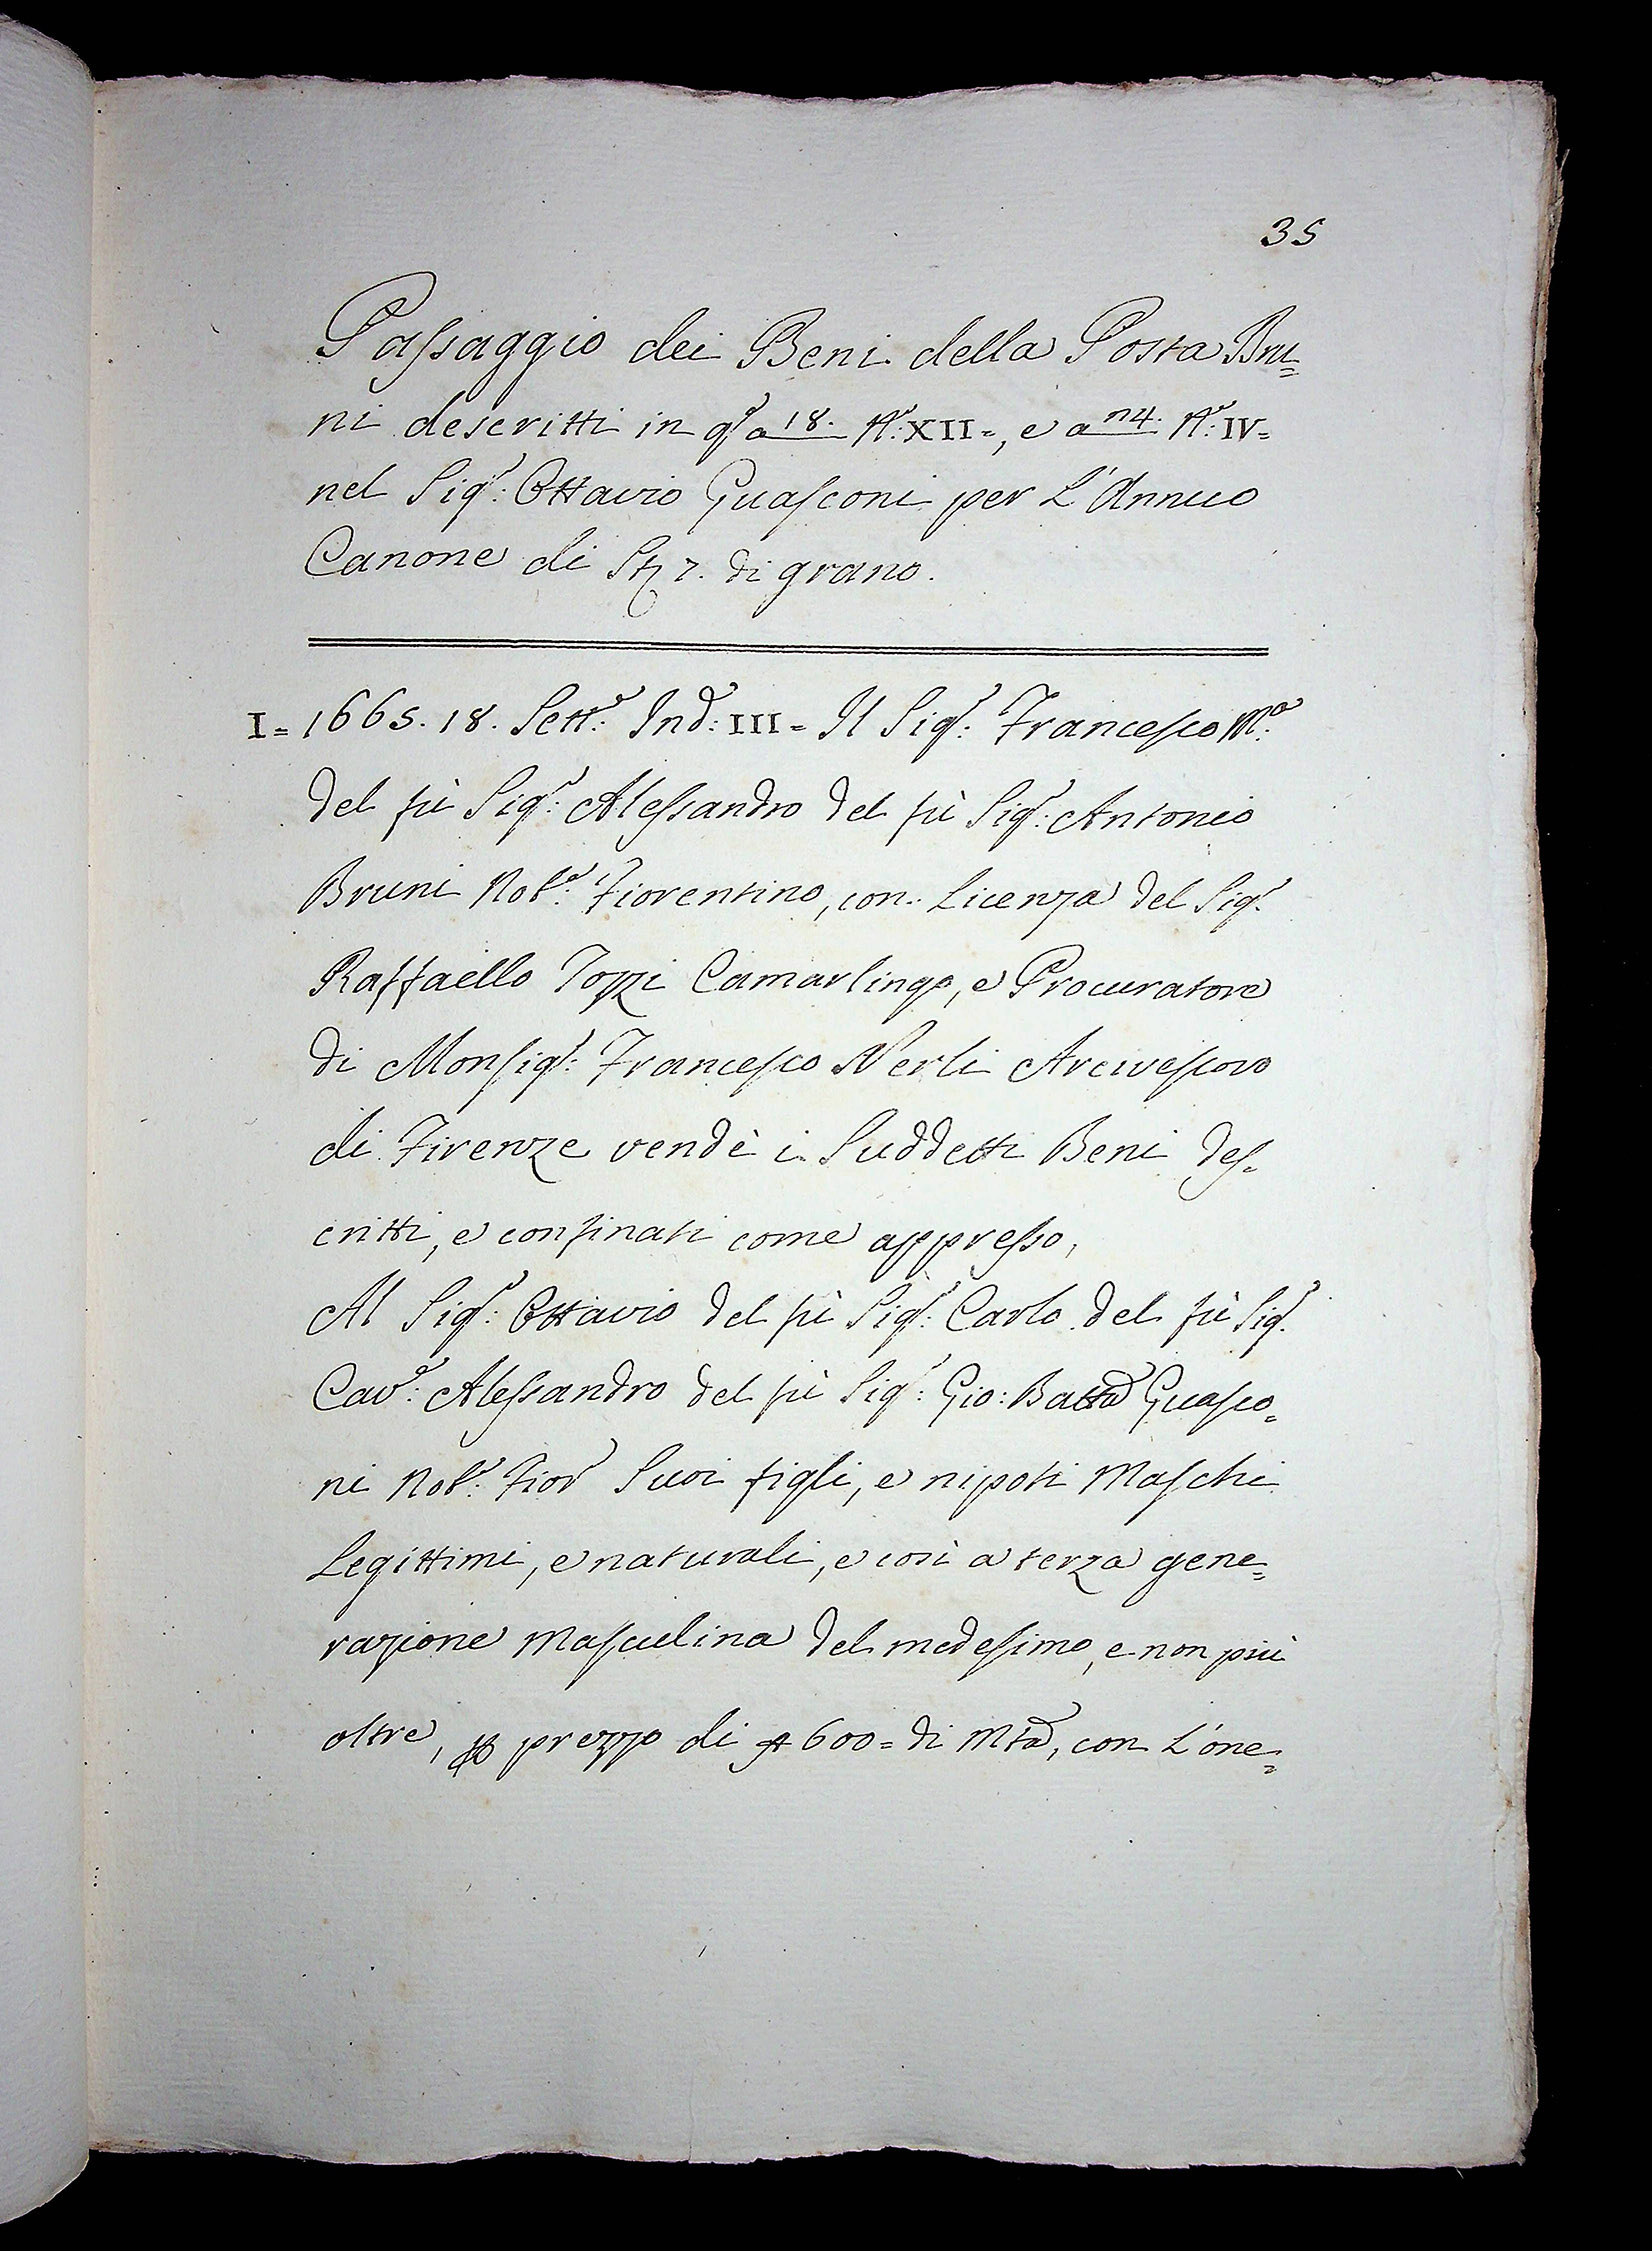 35
Passaggio dei Beni della Posta Bru=
ni descritti in qto a 18. No: XII=, e a 114. No: IV=
nel Sigr: Ottavio Guasconi per L'Annuo
Canone di 7. di grano.
I= 1665. 18. Sette: Ind: III= Il Sigr: Francesco Ma:
del fù Sigr: Alessandro del fù Sigr: Antonio
Bruni Nobe: Fiorentino, con Licenza del Sigr
Raffaello Tozzi Camarlingo, e Procuratore
di Monsigr: Francesco Nerli Arcivescovo
di Firenze vendè i Suddetti Beni des=
critti, e confinati come appresso,
Al Sigr: Ottavio del fù Sigr: Carlo del fù Sigr.
Cave: Alessandro del fù Sigr: Gio: Batta Guasco=
ni Nobe: Fior Suoi figli, e nipoti Maschi
Legittimi, e naturali, e così a terza gene=
razione Masculina del medesimo, e non più
oltre, p prezzo di 600= di Mta, con L'one=